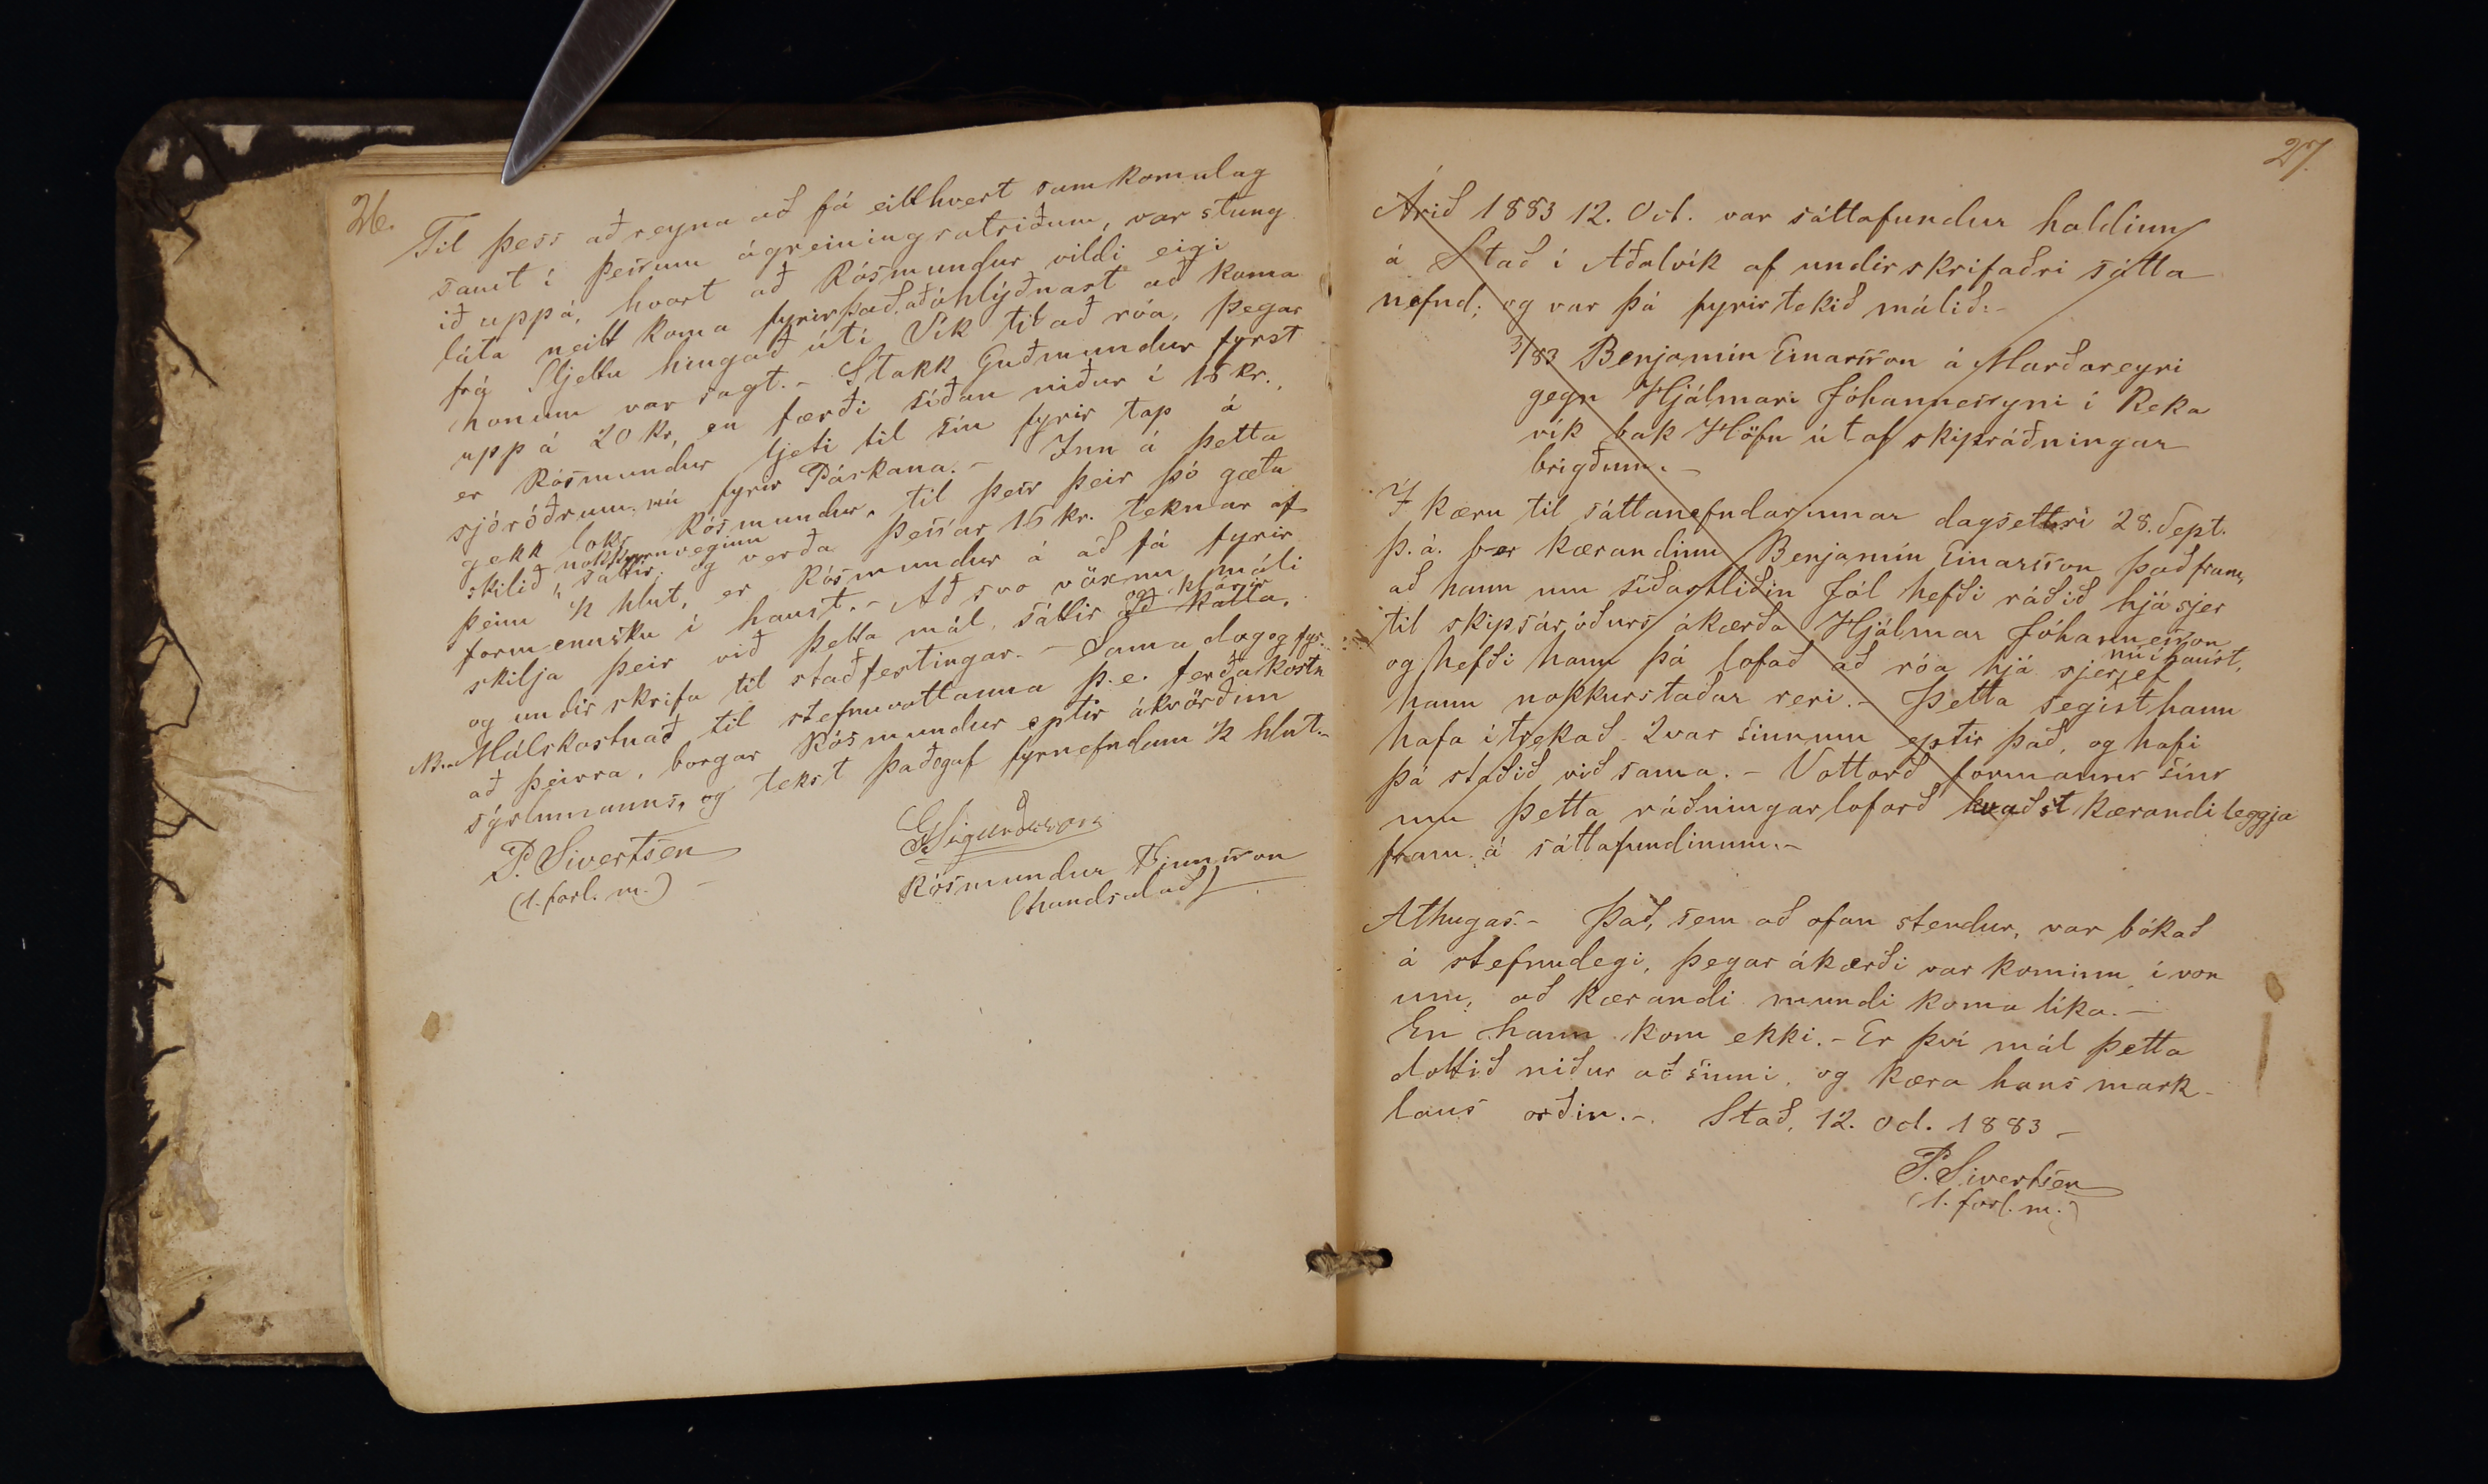 26.
Til þess að reyna að fá eitthvert samkomulag
samt í þessum ágreiningsatriðum, var stung
ið uppá, hvort að Rósmundur vildi eigi
láta neitt koma fyrir það, að óhlýðnast að koma
frá Sljettu hingað útí Vík til að róa, þegar
honum var sagt. - Stakk Guðmundur fyrst
upp á 20 kr, en færði síðan niður í 15 kr.,
er Rósmundur ljeti til sín fyrir tap á
sjóróðrum nú fyrir Páskana. - Inn á þetta
gekk loks Rósmundur, til þess þeir þó gætu
skilið nokkurnveginn sáttir, og verða þessar 15 kr. teknar af
þeim ½ hlut, er Rósmundur á að fá fyrir
formennsku í haust. - Að svo vöxnu máli
skilja þeir við þetta mál, sáttir að kalla, og klárir
og undirskrifa til staðfestingar. - Sama dag og fyr.
NB. Málskostnað til stefnuvottanna þ.e. ferðakostn
að þeirra, borgar Rósmundur eptir ákvörðun
sýslumanns, og tekst það og af fyrnefndum ½ hlut. -
P. Sivertsen
(1. forl. m.) -
G Sigurðsson
Rósmundur Finnsson
(handsalað)
27.
Árið 1883 12. Oct. var sáttafundur haldinn
á Stað í Aðalvík af undirskrifaðri sátta
nefnd; og var þá fyrirtekið málið: -
3/83 Benjamín Einarsson á Marðareyri
gegn Hjálmari Jóhannessyni í Reka
vík bak Höfn útaf skipráðningar
brigðum. -
Í kæru til sáttanefndarinnar dagsettri 28. Sept.
þ. á. ber kærandinn Benjamín Einarsson það fram,
að hann um síðastliðin Jól hefði ráðið hjá sjer
til skipsáróðurs ákærða Hjálmar Jóhannesson
og hefði hann þá lofað að róa hjá sjer nú í haust, ef
hann nokkurstaðar reri. - Þetta segist hann
hafa ítrekað 2var sinnum eptir það, og hafi
þá staðið við sama. - Vottorð formanns síns
um þetta ráðningarloforð kvaðst kærandi leggja
fram á sáttafundinum. -
Athugas. - Það, sem að ofan stendur, var bókað
á stefnudegi, þegar ákærði var kominn, í von
um, að kærandi mundi koma líka. -
En hann kom ekki. - Er því mál þetta
dottið niður að sinni, og kæra hans mark-
laus orðin. - Stað, 12. Oct. 1883 -
P. Sivertsen
(1. forl. m.)